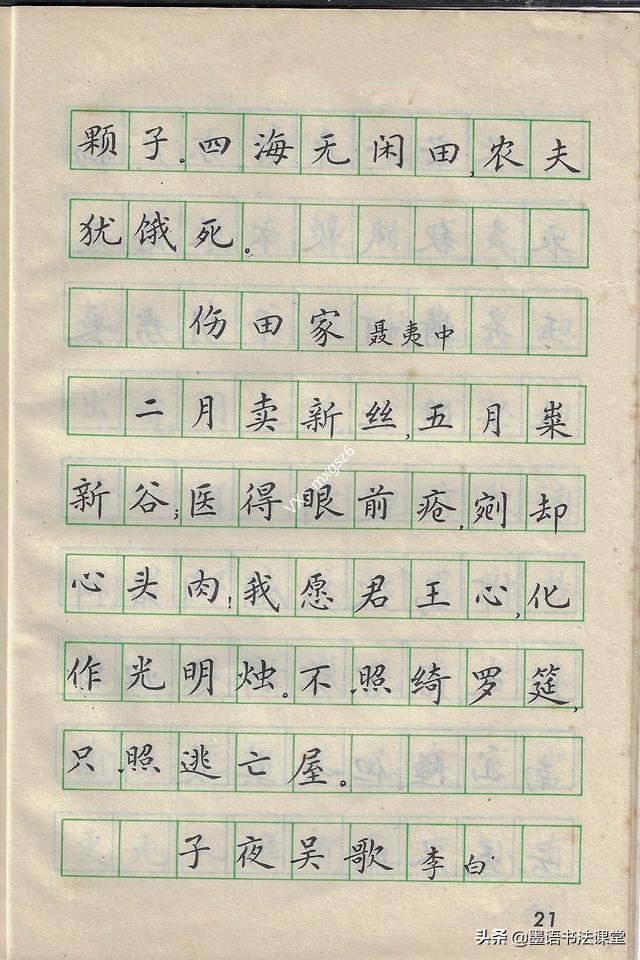 颗子。四海无闲田,农夫
犹饿死。
伤田家 聂夷中
二月卖新丝,五月粜
新谷;医得眼前疮,剜却
心头肉;我愿君王心,化
作光明烛。不照绮罗筵,
只照逃亡屋。
子夜吴歌 李白
21
头条 @墨语书法课堂